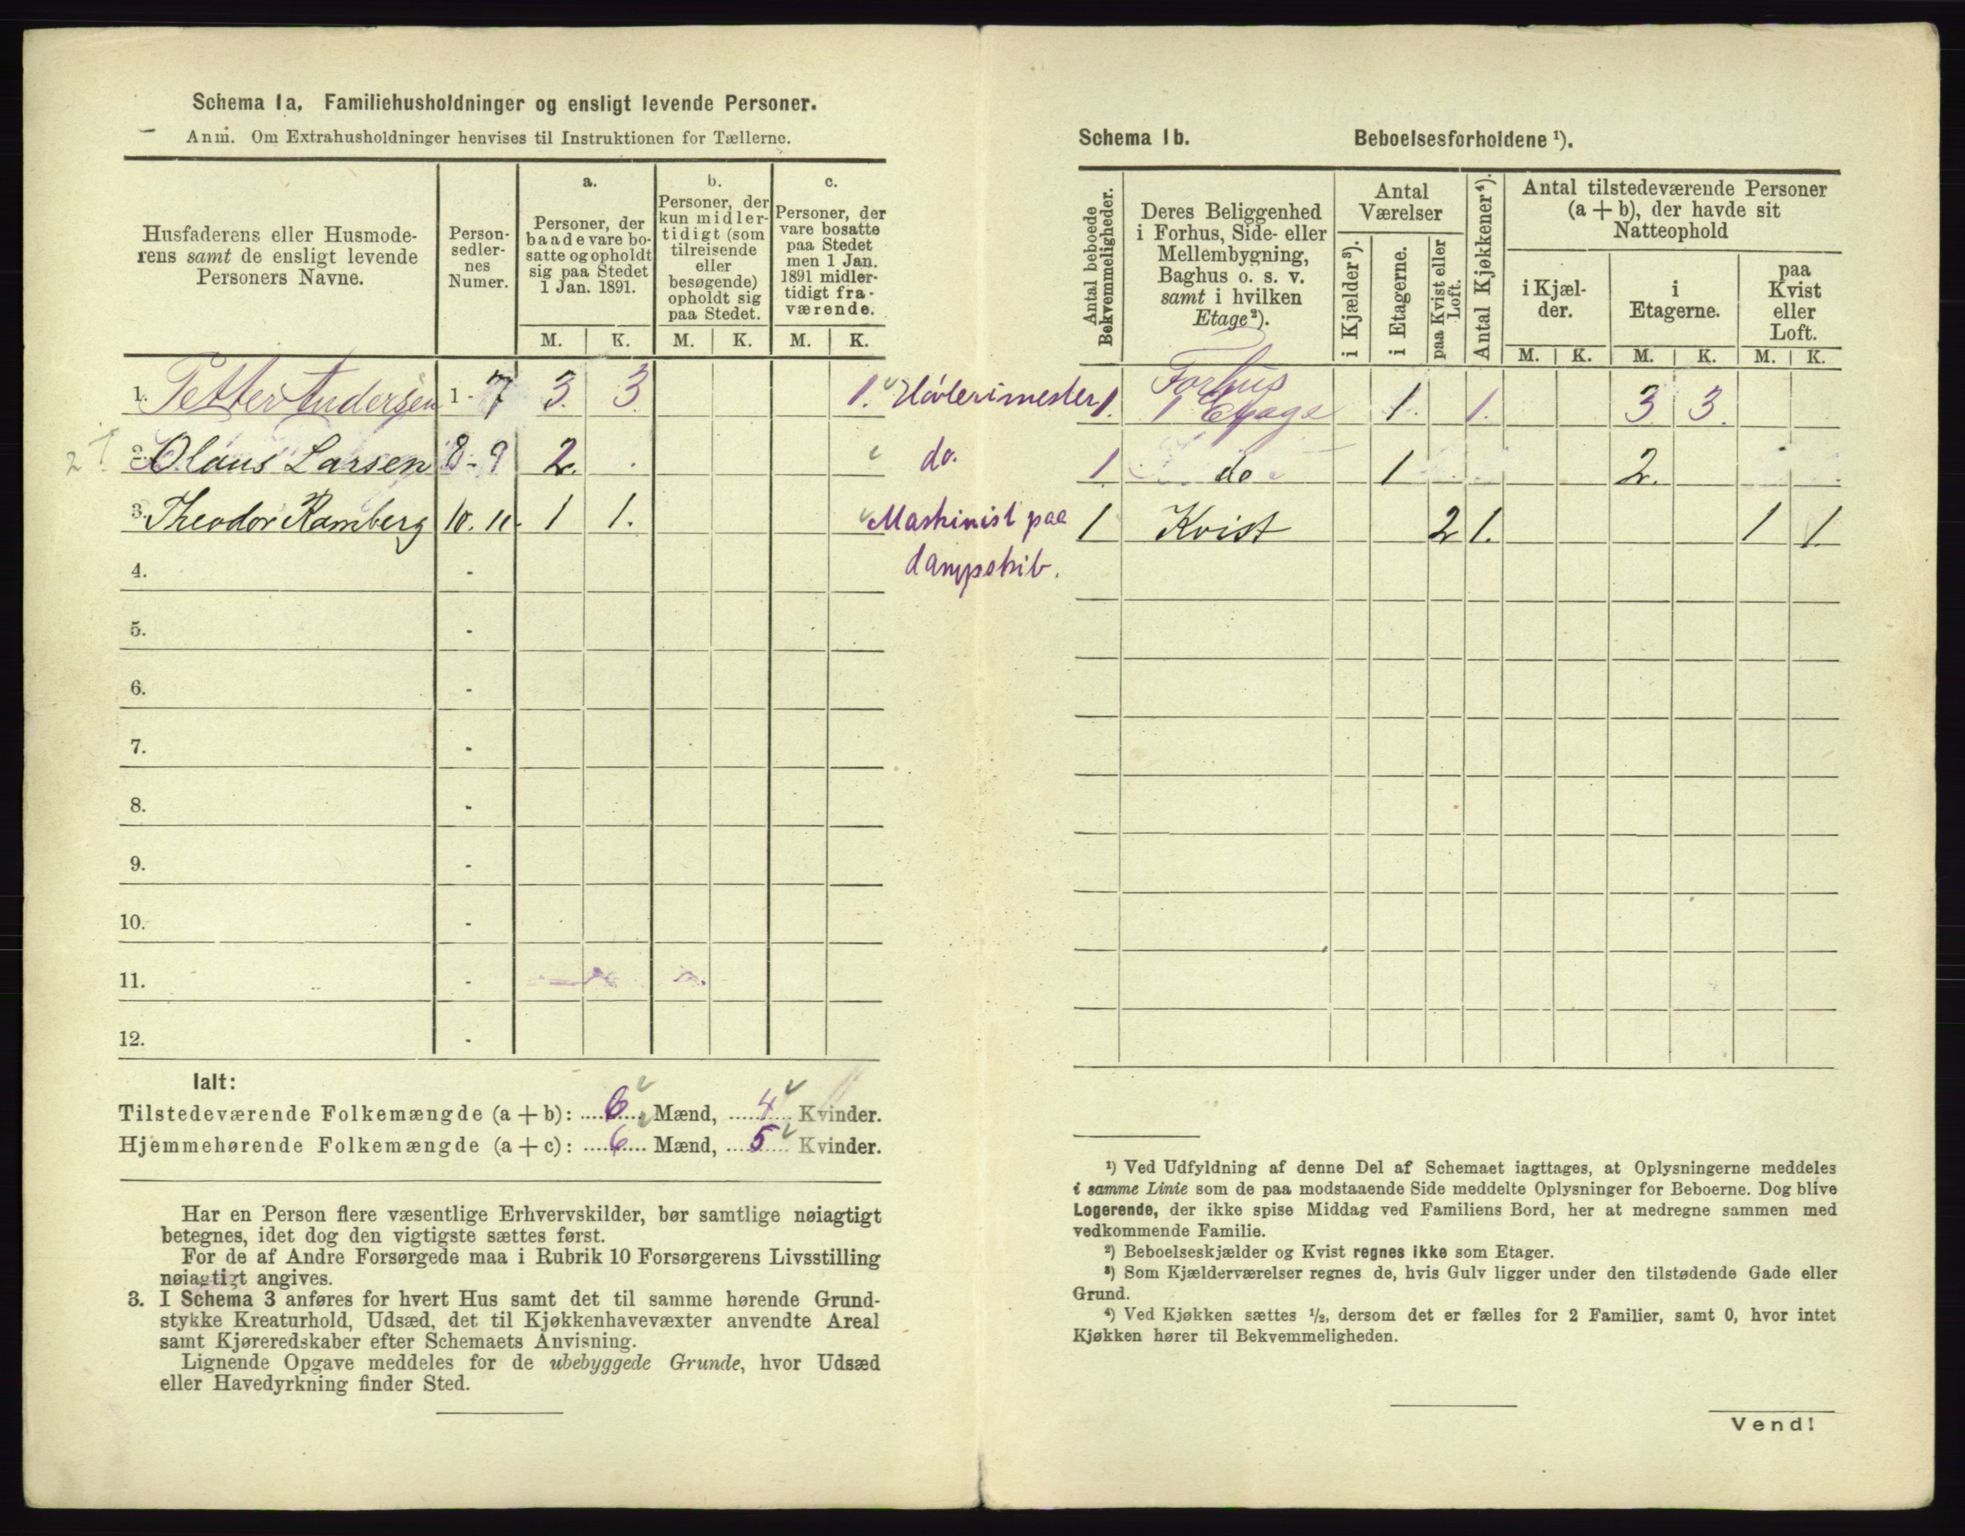 Schema 1a. Familiehusholdninger og ensligt levende Personer.
Anm. Om Extrahusholdninger henvises til Instruktionen for Tællerne.
Husfaderens eller Husmoderens samt de ensligt levende Personers Navne.
Person-sedler-nes Numer.
a.
Personer, der baade vare bo-satte og opholdt sig paa Stedet 1 Jan. 1891.
b.
Personer, der kun midler-tidigt (som tilreisende eller besøgende) opholdt sig paa Stedet.
c.
Personer, der vare bosatte paa Stedet men 1 Jan. 1891 midler-tidigt fra-værende.
M. K. M. K. M. K.
1. Petter Andersen 1 - 7 3. 3 1. Høvlerimester
2. Olaus Larsen 8 - 9 2. do.
3. Theodor Ramberg 10. 11. 1 1. Maskinist paa
dampskib.
4. -
5. -
6. -
7. -
8. -
9. -
10. -
11. -
12. -
Ialt:
Tilstedeværende Folkemængde (a + b): 6 Mænd, 4 Kvinder.
Hjemmehørende Folkemængde (a + c): 6 Mænd, 5 Kvinder.
Har en Person flere væsentlige Erhvervskilder, bør samtlige nøiagtigt
betegnes, idet dog den vigtigste sættes først.
For de af Andre Forsørgede maa i Rubrik 10 Forsørgerens Livsstilling
nøiagtigt angives.
3. I Schema 3 anføres for hvert Hus samt det til samme hørende Grund-
stykke Kreaturhold, Udsæd, det til Kjøkkenhavevæxter anvendte Areal
samt Kjøreredskaber efter Schemaets Anvisning.
Lignende Opgave meddeles for de ubebyggede Grunde, hvor Udsæd
eller Havedyrkning finder Sted.
Schema 1b. Beboelsesforholdene ¹).
Antal beboede Bekvemmeligheder.
Deres Beliggenhed i Forhus, Side- eller Mellembygning, Baghus o. s. v. samt i hvilken Etage²).
Antal Værelser
i Kjælder³).
i Etagerne.
paa Kvist eller Loft.
Antal Kjøkkener⁴).
Antal tilstedeværende Personer (a + b), der havde sit Natteophold
i Kjæl-der.
i Etagerne.
paa Kvist eller Loft.
M. K. M. K. M. K.
1. Forhus 1 Etage 1. 1. 3 3.
1. do 1 2.
1 Kvist 2 1. 1 1.
¹) Ved Udfyldning af denne Del af Schemaet iagttages, at Oplysningerne meddeles
i samme Linie som de paa modstaaende Side meddelte Oplysninger for Beboerne. Dog blive
Logerende, der ikke spise Middag ved Familiens Bord, her at medregne sammen med
vedkommende Familie.
²) Beboelseskjælder og Kvist regnes ikke som Etager.
³) Som Kjælderværelser regnes de, hvis Gulv ligger under den tilstødende Gade eller
Grund.
⁴) Ved Kjøkken sættes ½, dersom det er fælles for 2 Familier, samt 0, hvor intet
Kjøkken hører til Bekvemmeligheden.
Vend!